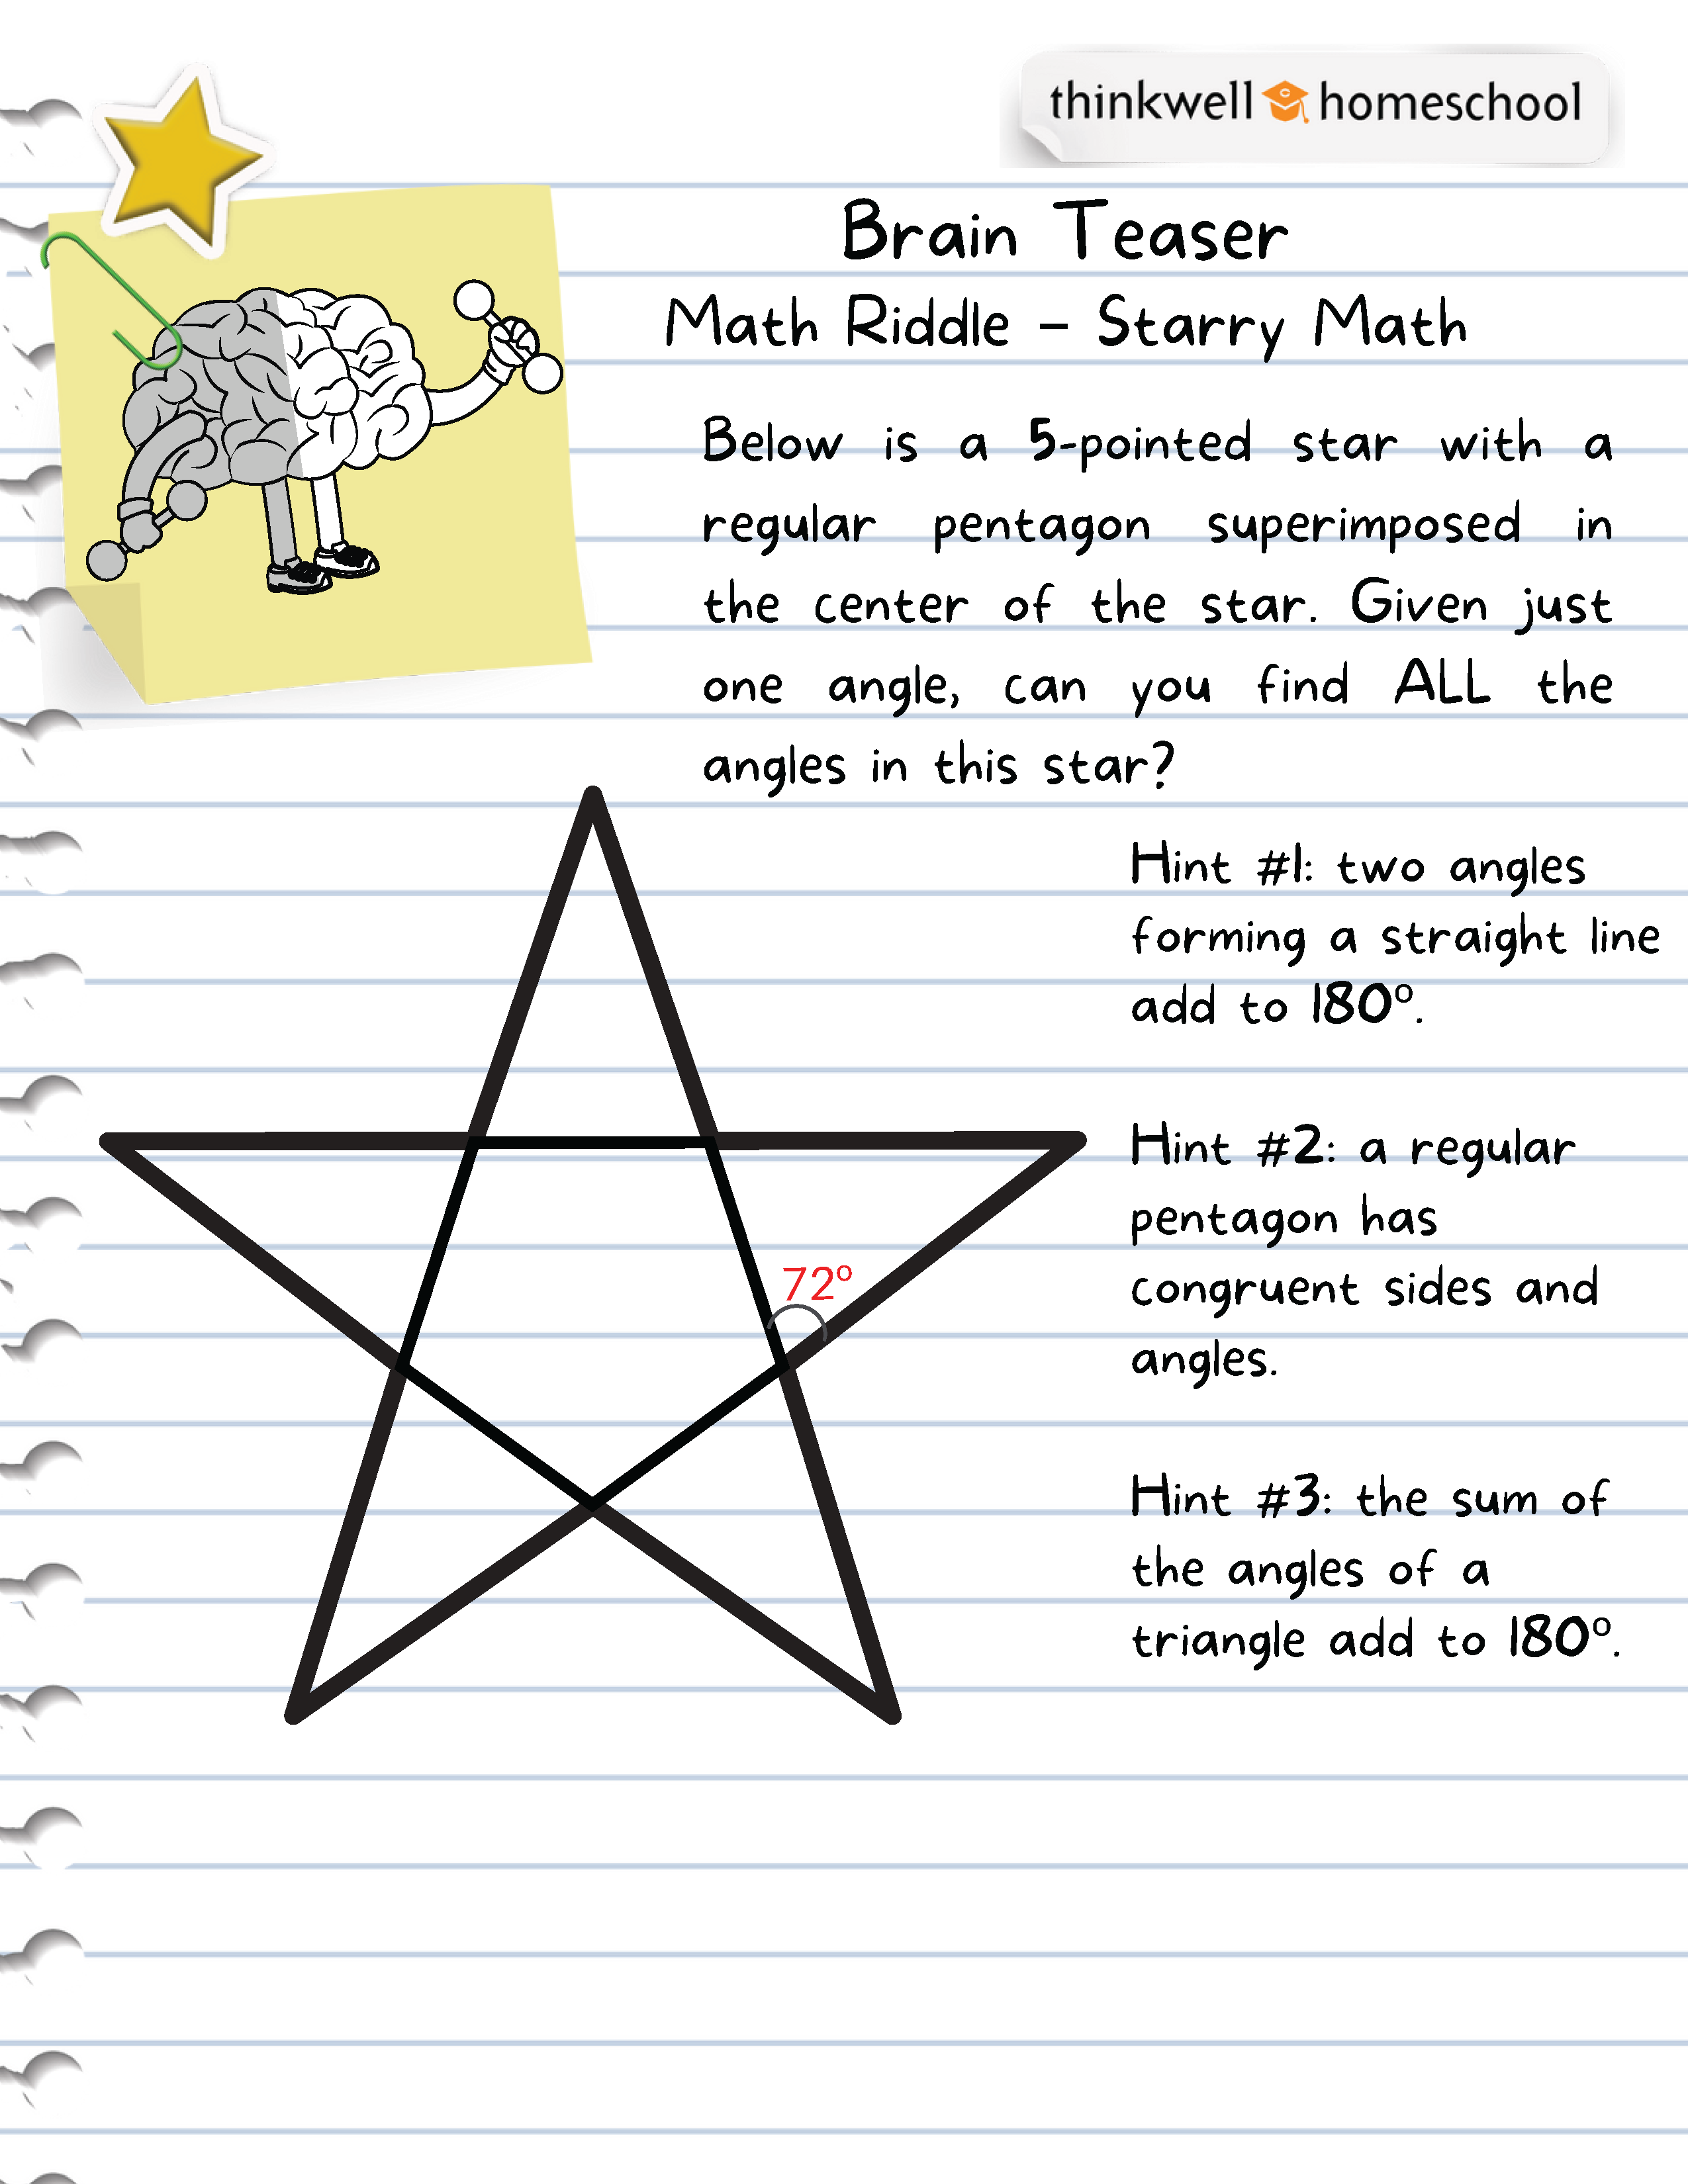 thinkwell homeschool
Brain Teaser
Math Riddle - Starry Math
Below is a 5-pointed star with a
regular pentagon superimposed in
the center of the star. Given just
one angle, can you find ALL the
angles in this star?
Hint #1: two angles
forming a straight line
add to 180º.
Hint #2: a regular
pentagon has
congruent sides and
angles.
72º
Hint #3: the sum of
the angles of a
triangle add to 180º.